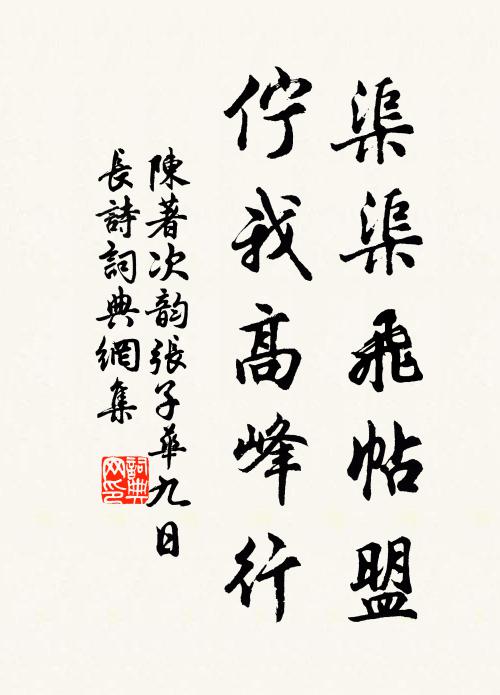 渠渠飛帖盟
佇我高峰行
陳著次韵張子華九日
長詩詞典網集
詞典
网印